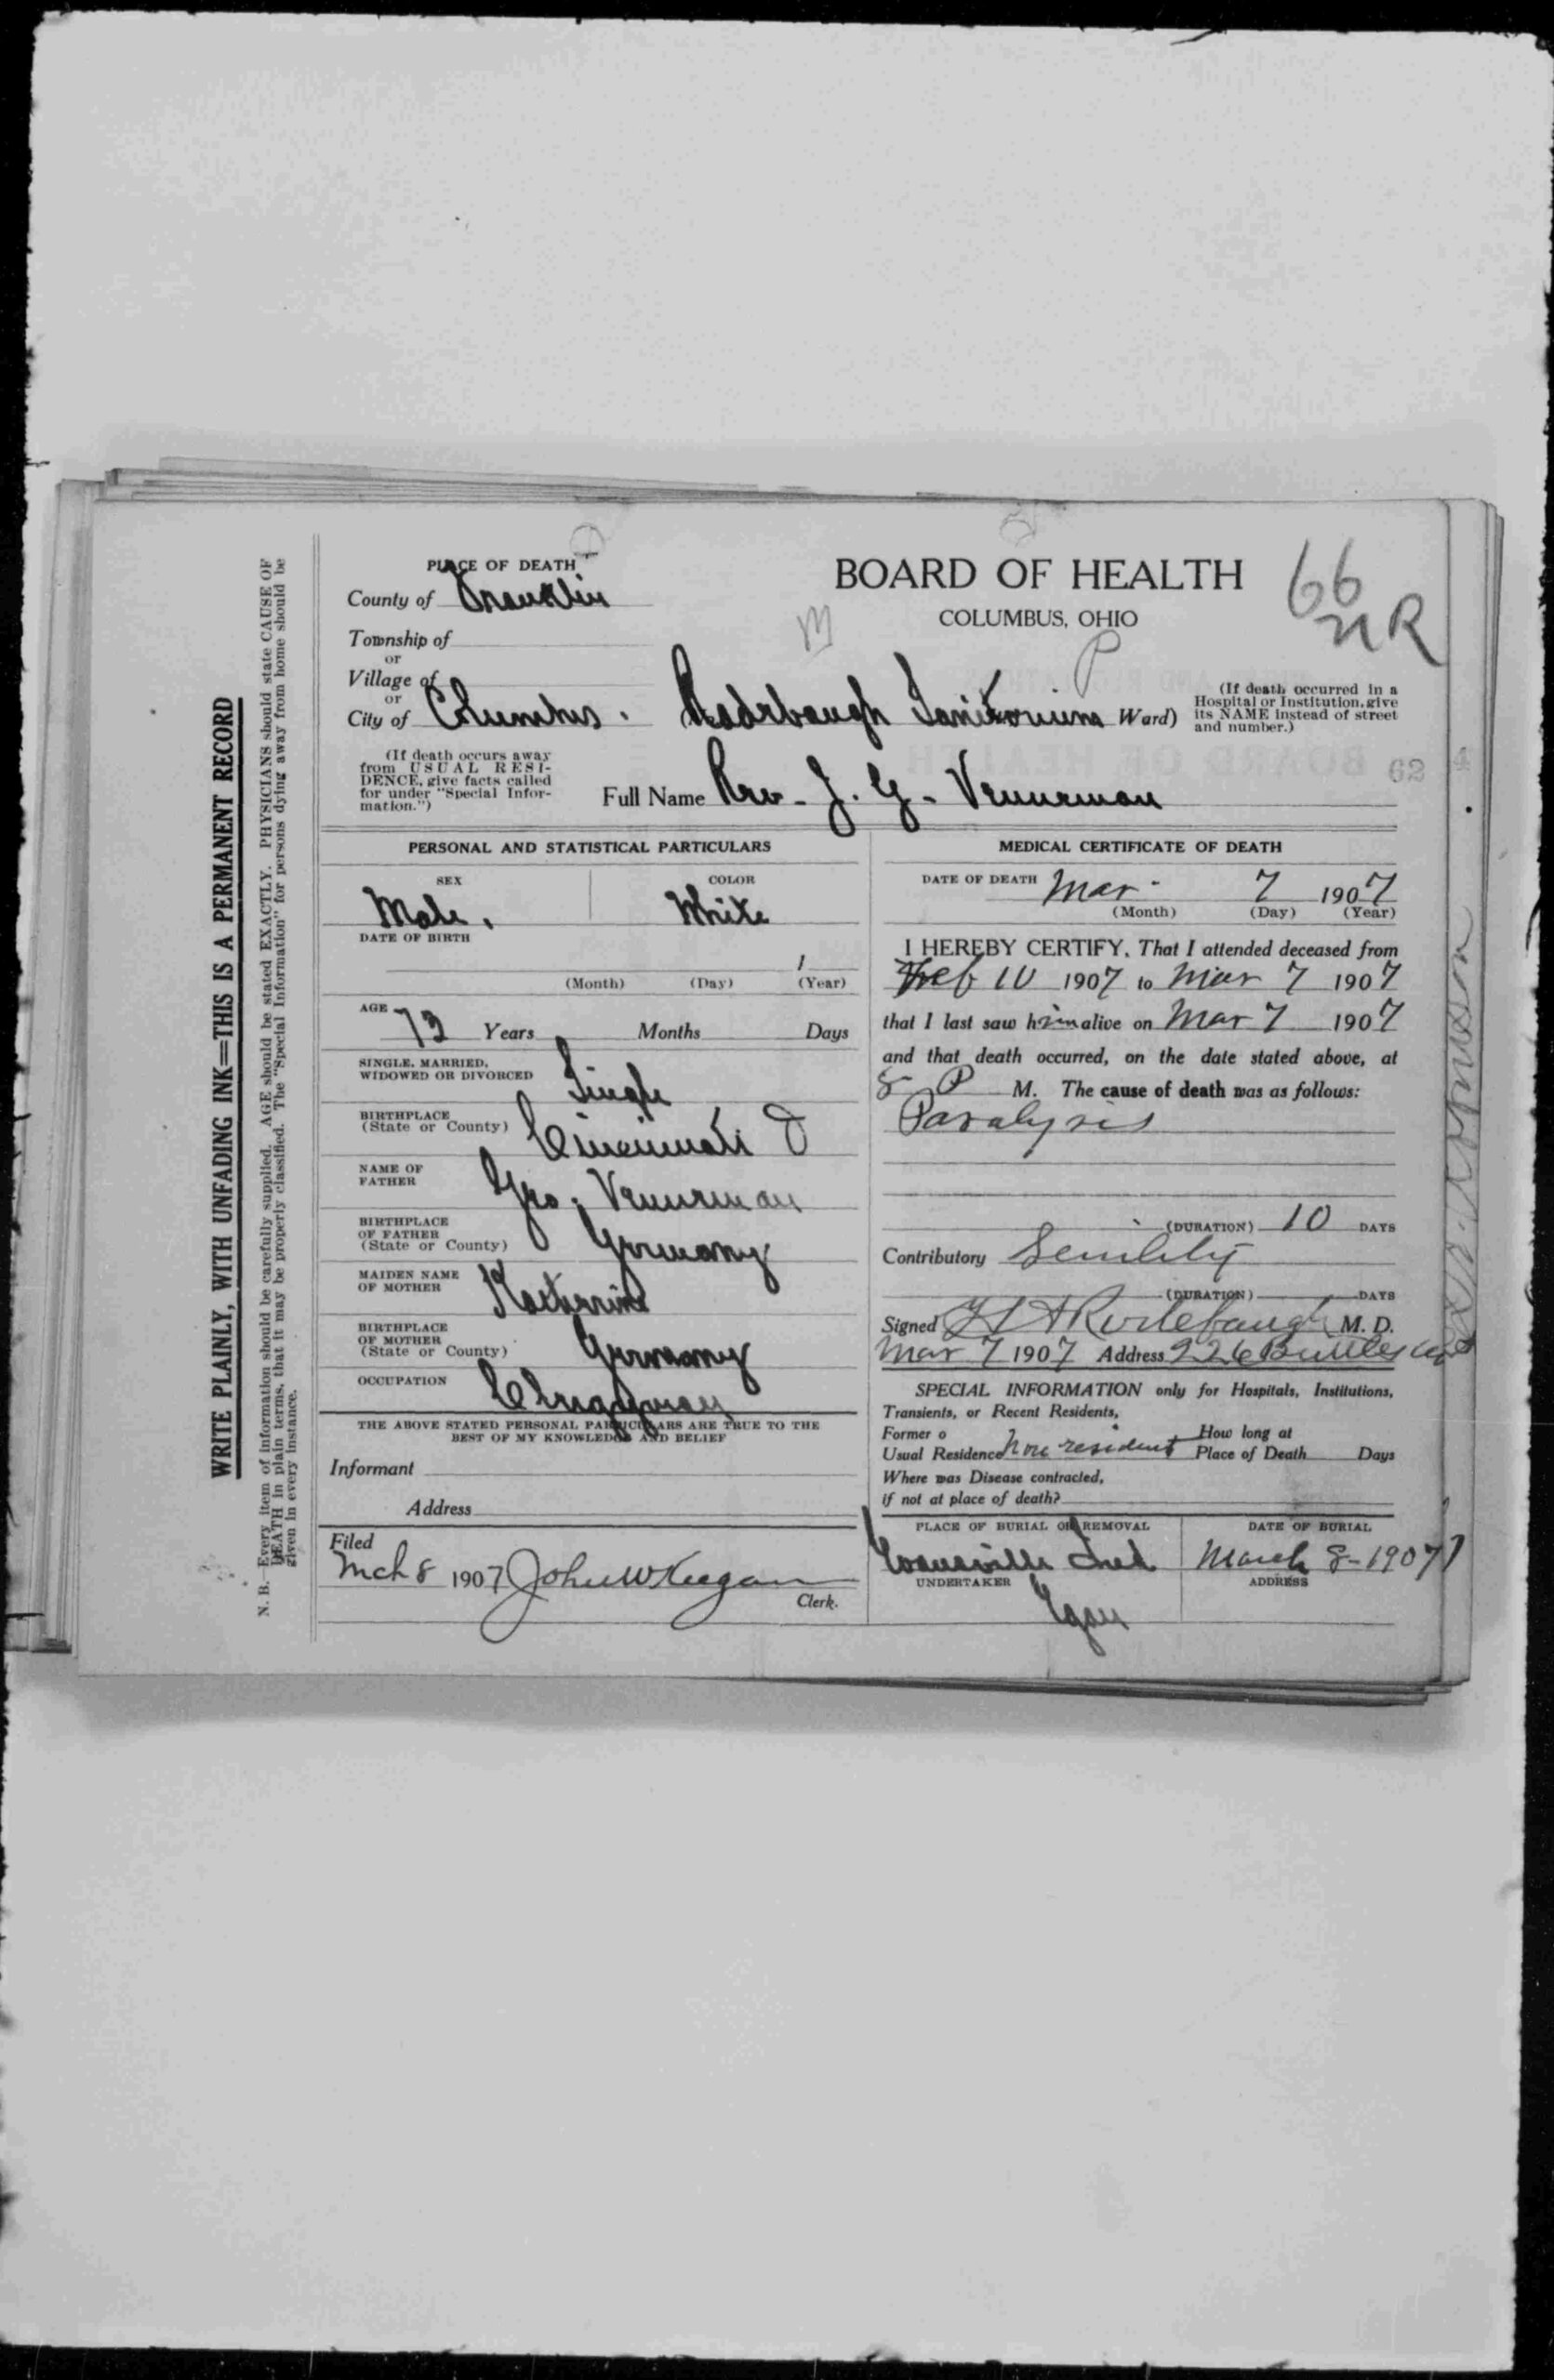 WRITE PLAINLY, WITH UNFADING INK=THIS IS A PERMANENT RECORD
N. B.—Every item of information should be carefully supplied. AGE should be stated EXACTLY. PHYSICIANS should state CAUSE OF
DEATH in plain terms, that it may be properly classified. The "Special Information" for persons dying away from home should be
given in every instance.
PLACE OF DEATH
County of Franklin
Township of
or
Village of
or
City of Columbus.
BOARD OF HEALTH
COLUMBUS, OHIO
66
NR
M
P
Sanitorium Ward)
(If death occurred in a
Hospital or Institution, give
its NAME instead of street
and number.)
62
(If death occurs away
from USUAL RESI-
DENCE, give facts called
for under "Special Infor-
mation.")
Full Name Rev. J. G. Vennerman
PERSONAL AND STATISTICAL PARTICULARS
SEX
Male.
COLOR
White
DATE OF BIRTH
1
(Month) (Day) (Year)
AGE
73 Years Months Days
SINGLE, MARRIED,
WIDOWED OR DIVORCED
Single
BIRTHPLACE
(State or County)
Cincinnati O
NAME OF
FATHER
Geo. Vennerman
BIRTHPLACE
OF FATHER
(State or County)
Germany
MAIDEN NAME
OF MOTHER
Katherine
BIRTHPLACE
OF MOTHER
(State or County)
Germany
OCCUPATION
Clergyman
THE ABOVE STATED PERSONAL PARTICULARS ARE TRUE TO THE
BEST OF MY KNOWLEDGE AND BELIEF
Informant
Address
Filed
Mch 8 1907 John W Keegan
Clerk.
MEDICAL CERTIFICATE OF DEATH
DATE OF DEATH Mar. 7 1907
(Month) (Day) (Year)
I HEREBY CERTIFY, That I attended deceased from
Feb 10 1907 to Mar 7 1907
that I last saw him alive on Mar 7 1907
and that death occurred, on the date stated above, at
8 P M. The cause of death was as follows:
Paralysis
(DURATION) 10 DAYS
Contributory Senility
(DURATION) DAYS
Signed H A Rodebaugh M. D.
Mar 7 1907 Address 226 Buttles ave
SPECIAL INFORMATION only for Hospitals, Institutions,
Transients, or Recent Residents,
Former o
Usual Residence Non resident
How long at
Place of Death Days
Where was Disease contracted,
if not at place of death?
PLACE OF BURIAL OR REMOVAL
Evansville Ind
DATE OF BURIAL
March 8-1907
UNDERTAKER
Egan
ADDRESS